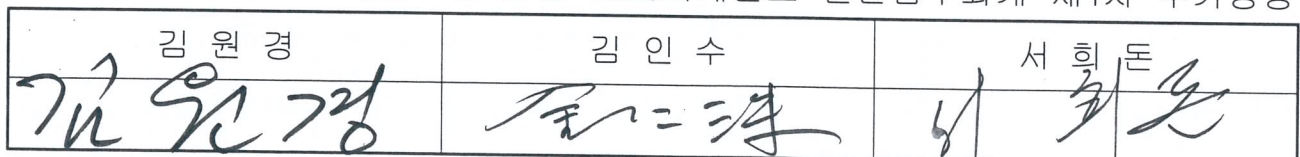 김 원 경 김 인 수 서 희 돈
김 원 경 金 仁 洙 서 희 돈